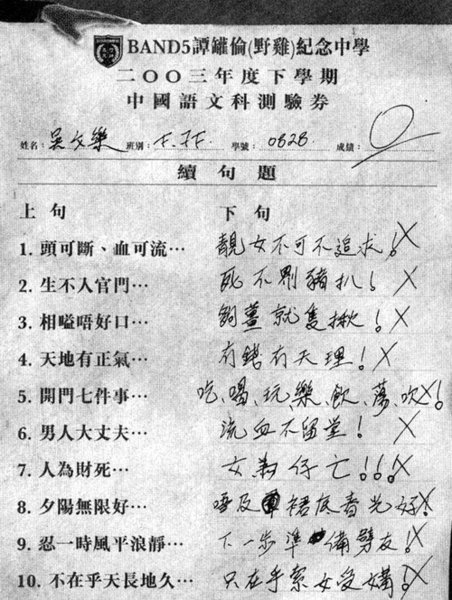 BAND5譚罐倫(野雞)紀念中學
二〇〇三年度下學期
中國語文科測驗券
姓名:吳文樂 班別: 學號:0828. 成績:0
續句題
上句 下句
1. 頭可斷、血可流⋯ 靚女不可不追求!
2. 生不入官門⋯ 死不豬扒!
3. 相嗌唔好口⋯ 夠薑就隻揪!
4. 天地有正氣⋯ 有錢有天理!
5. 開門七件事⋯ 吃、喝、玩、樂、飲、蕩、吹!
6. 男人大丈夫⋯ 流血不留堂!
7. 人為財死⋯ 女為仔亡!!!
8. 夕陽無限好⋯ 唔及裙底春光好!
9. 忍一時風平浪靜⋯ 下一步準備劈友!
10. 不在乎天長地久⋯ 只在乎索女受媾!